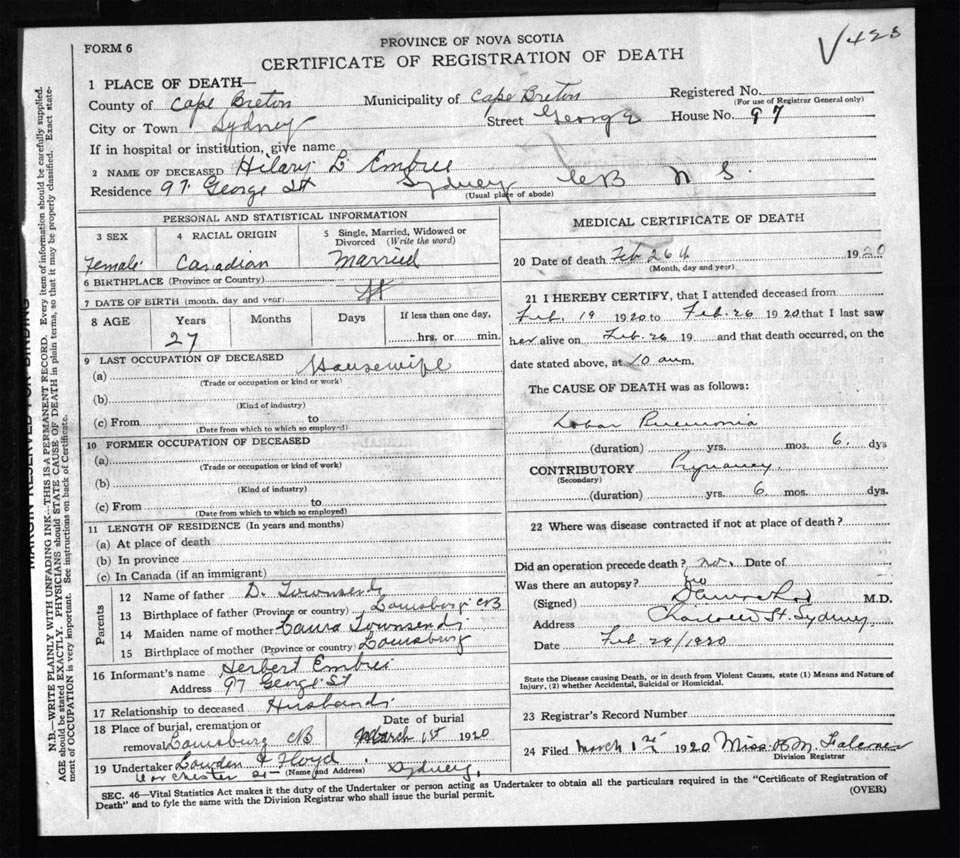 FORM 6
PROVINCE OF NOVA SCOTIA
CERTIFICATE OF REGISTRATION OF DEATH
V 423
1 PLACE OF DEATH—
County of Cape Breton Municipality of Cape Breton Registered No.
(For use of Registrar General only)
City or Town Sydney Street George House No. 97
If in hospital or institution, give name
2 NAME OF DECEASED Hilary L Embree
Residence 97 George St Sydney CB N S.
(Usual place of abode)
PERSONAL AND STATISTICAL INFORMATION
3 SEX
4 RACIAL ORIGIN
5 Single, Married, Widowed or Divorced (Write the word)
Female Canadian Married
6 BIRTHPLACE (Province or Country)
7 DATE OF BIRTH (month, day and year)
8 AGE Years Months Days If less than one day,
27 hrs. or min.
9 LAST OCCUPATION OF DECEASED
(a) Housewife
(Trade or occupation or kind or work)
(b)
(Kind of industry)
(c) From to
(Date from which to which so employed)
10 FORMER OCCUPATION OF DECEASED
(a)
(Trade or occupation or kind of work)
(b)
(Kind of industry)
(c) From to
(Date from which to which so employed)
11 LENGTH OF RESIDENCE (In years and months)
(a) At place of death
(b) In province
(c) In Canada (if an immigrant)
Parents
12 Name of father D. Townsend
13 Birthplace of father (Province or country) Louisburg CB
14 Maiden name of mother Laura Townsend
15 Birthplace of mother (Province or country) Louisburg
16 Informant's name Herbert Embree
Address 97 George St
17 Relationship to deceased Husband
18 Place of burial, cremation or removal Louisburg CB
Date of burial
March 1st 1920
19 Undertaker Lowden & Floyd
(Name and Address) Dorchester St Sydney,
MEDICAL CERTIFICATE OF DEATH
20 Date of death Feb 26th 1920
(Month, day and year)
21 I HEREBY CERTIFY, that I attended deceased from
Feb. 19 1920 to Feb. 26 1920 that I last saw
her alive on Feb. 26 19 and that death occurred, on the
date stated above, at 10 a m.
The CAUSE OF DEATH was as follows:
Lobar Pneumonia
(duration) yrs. mos. 6. dys
CONTRIBUTORY Pregnancy
(Secondary)
(duration) yrs. 6 mos. dys.
22 Where was disease contracted if not at place of death?
Did an operation precede death? no. Date of
Was there an autopsy? no
(Signed) M.D.
Address Charlotte St. Sydney
Date Feb 29/1920
State the Disease causing Death, or in death from Violent Causes, state (1) Means and Nature of
Injury, (2) whether Accidental, Suicidal or Homicidal.
23 Registrar's Record Number
24 Filed March 1st 1920 Miss M.
Division Registrar
SEC. 46—Vital Statistics Act makes it the duty of the Undertaker or person acting as Undertaker to obtain all the particulars required in the "Certificate of Registration of
Death" and to fyle the same with the Division Registrar who shall issue the burial permit.
(OVER)
MARGIN RESERVED FOR BINDING
N.B.—WRITE PLAINLY WITH UNFADING INK—THIS IS A PERMANENT RECORD. Every item of information should be carefully supplied.
AGE should be stated EXACTLY. PHYSICIANS should STATE CAUSE OF DEATH in plain terms, so that it may be properly classified. Exact state-
ment of OCCUPATION is very important. See instructions on back of Certificate.